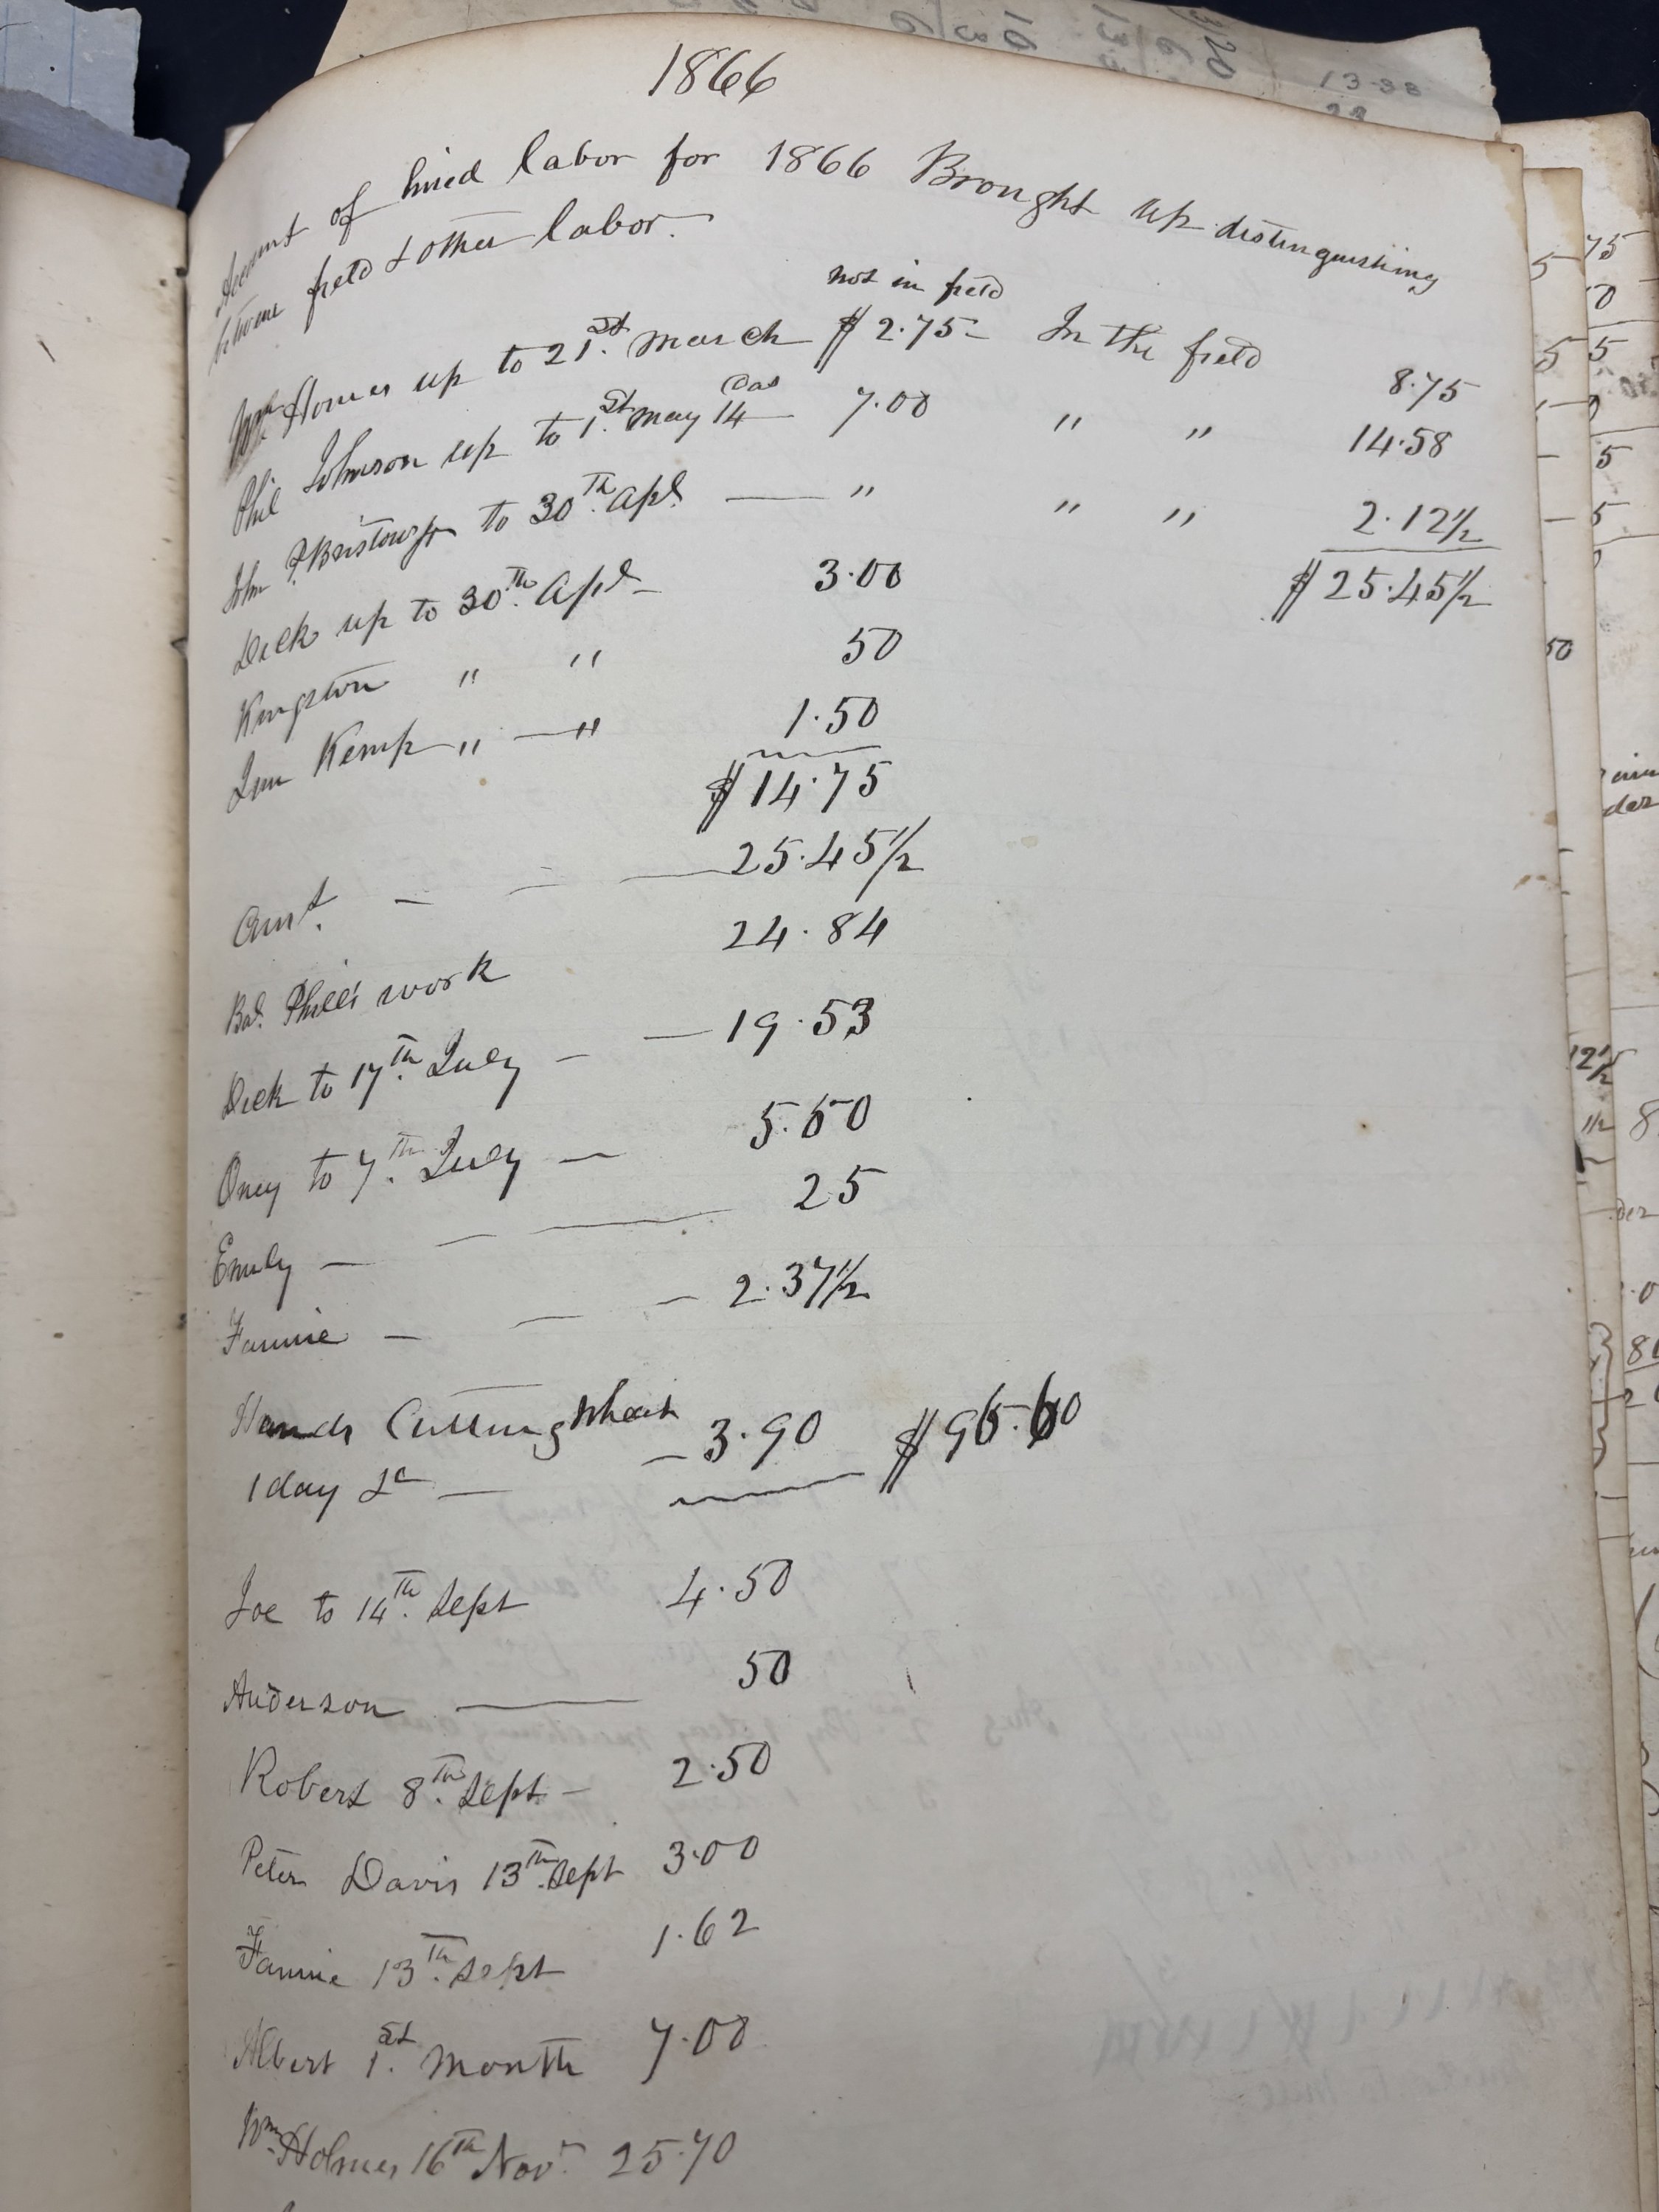 1866
Account of hired labor for 1866 Brought up distinguishing
between field & other labor.
not in field
Wm. Homes up to 21st. March $ 2.75 In the field 8.75
Phil Johnson up to 1st. May 14 Das 7.00 " " 14.58
John Bristow to 30th. Apl. — " " " 2.12½
$ 25.45½
Dick up to 30th. Apl — 3.00
Kingston " " 50
Jim Kemp " — " 1.50
$ 14.75
Amt. — — — 25.45½
Bal. Phill's work 24.84
Dick to 17th. July — — 19.53
Oney to 7th. July — 5.50
Emily — — — — 25
Fannie — — — 2.37½
Hands Cutting Wheat
1 day — 3.90 $ 96.60
Joe to 14th. Sept 4.50
Anderson — 50
Robert 8th. Sept — 2.50
Peter Davis 13th. Sept 3.00
Fannie 13th. Sept 1.62
Albert 1st. Month 7.00
Wm. Holmes 16th Novr. 25.70